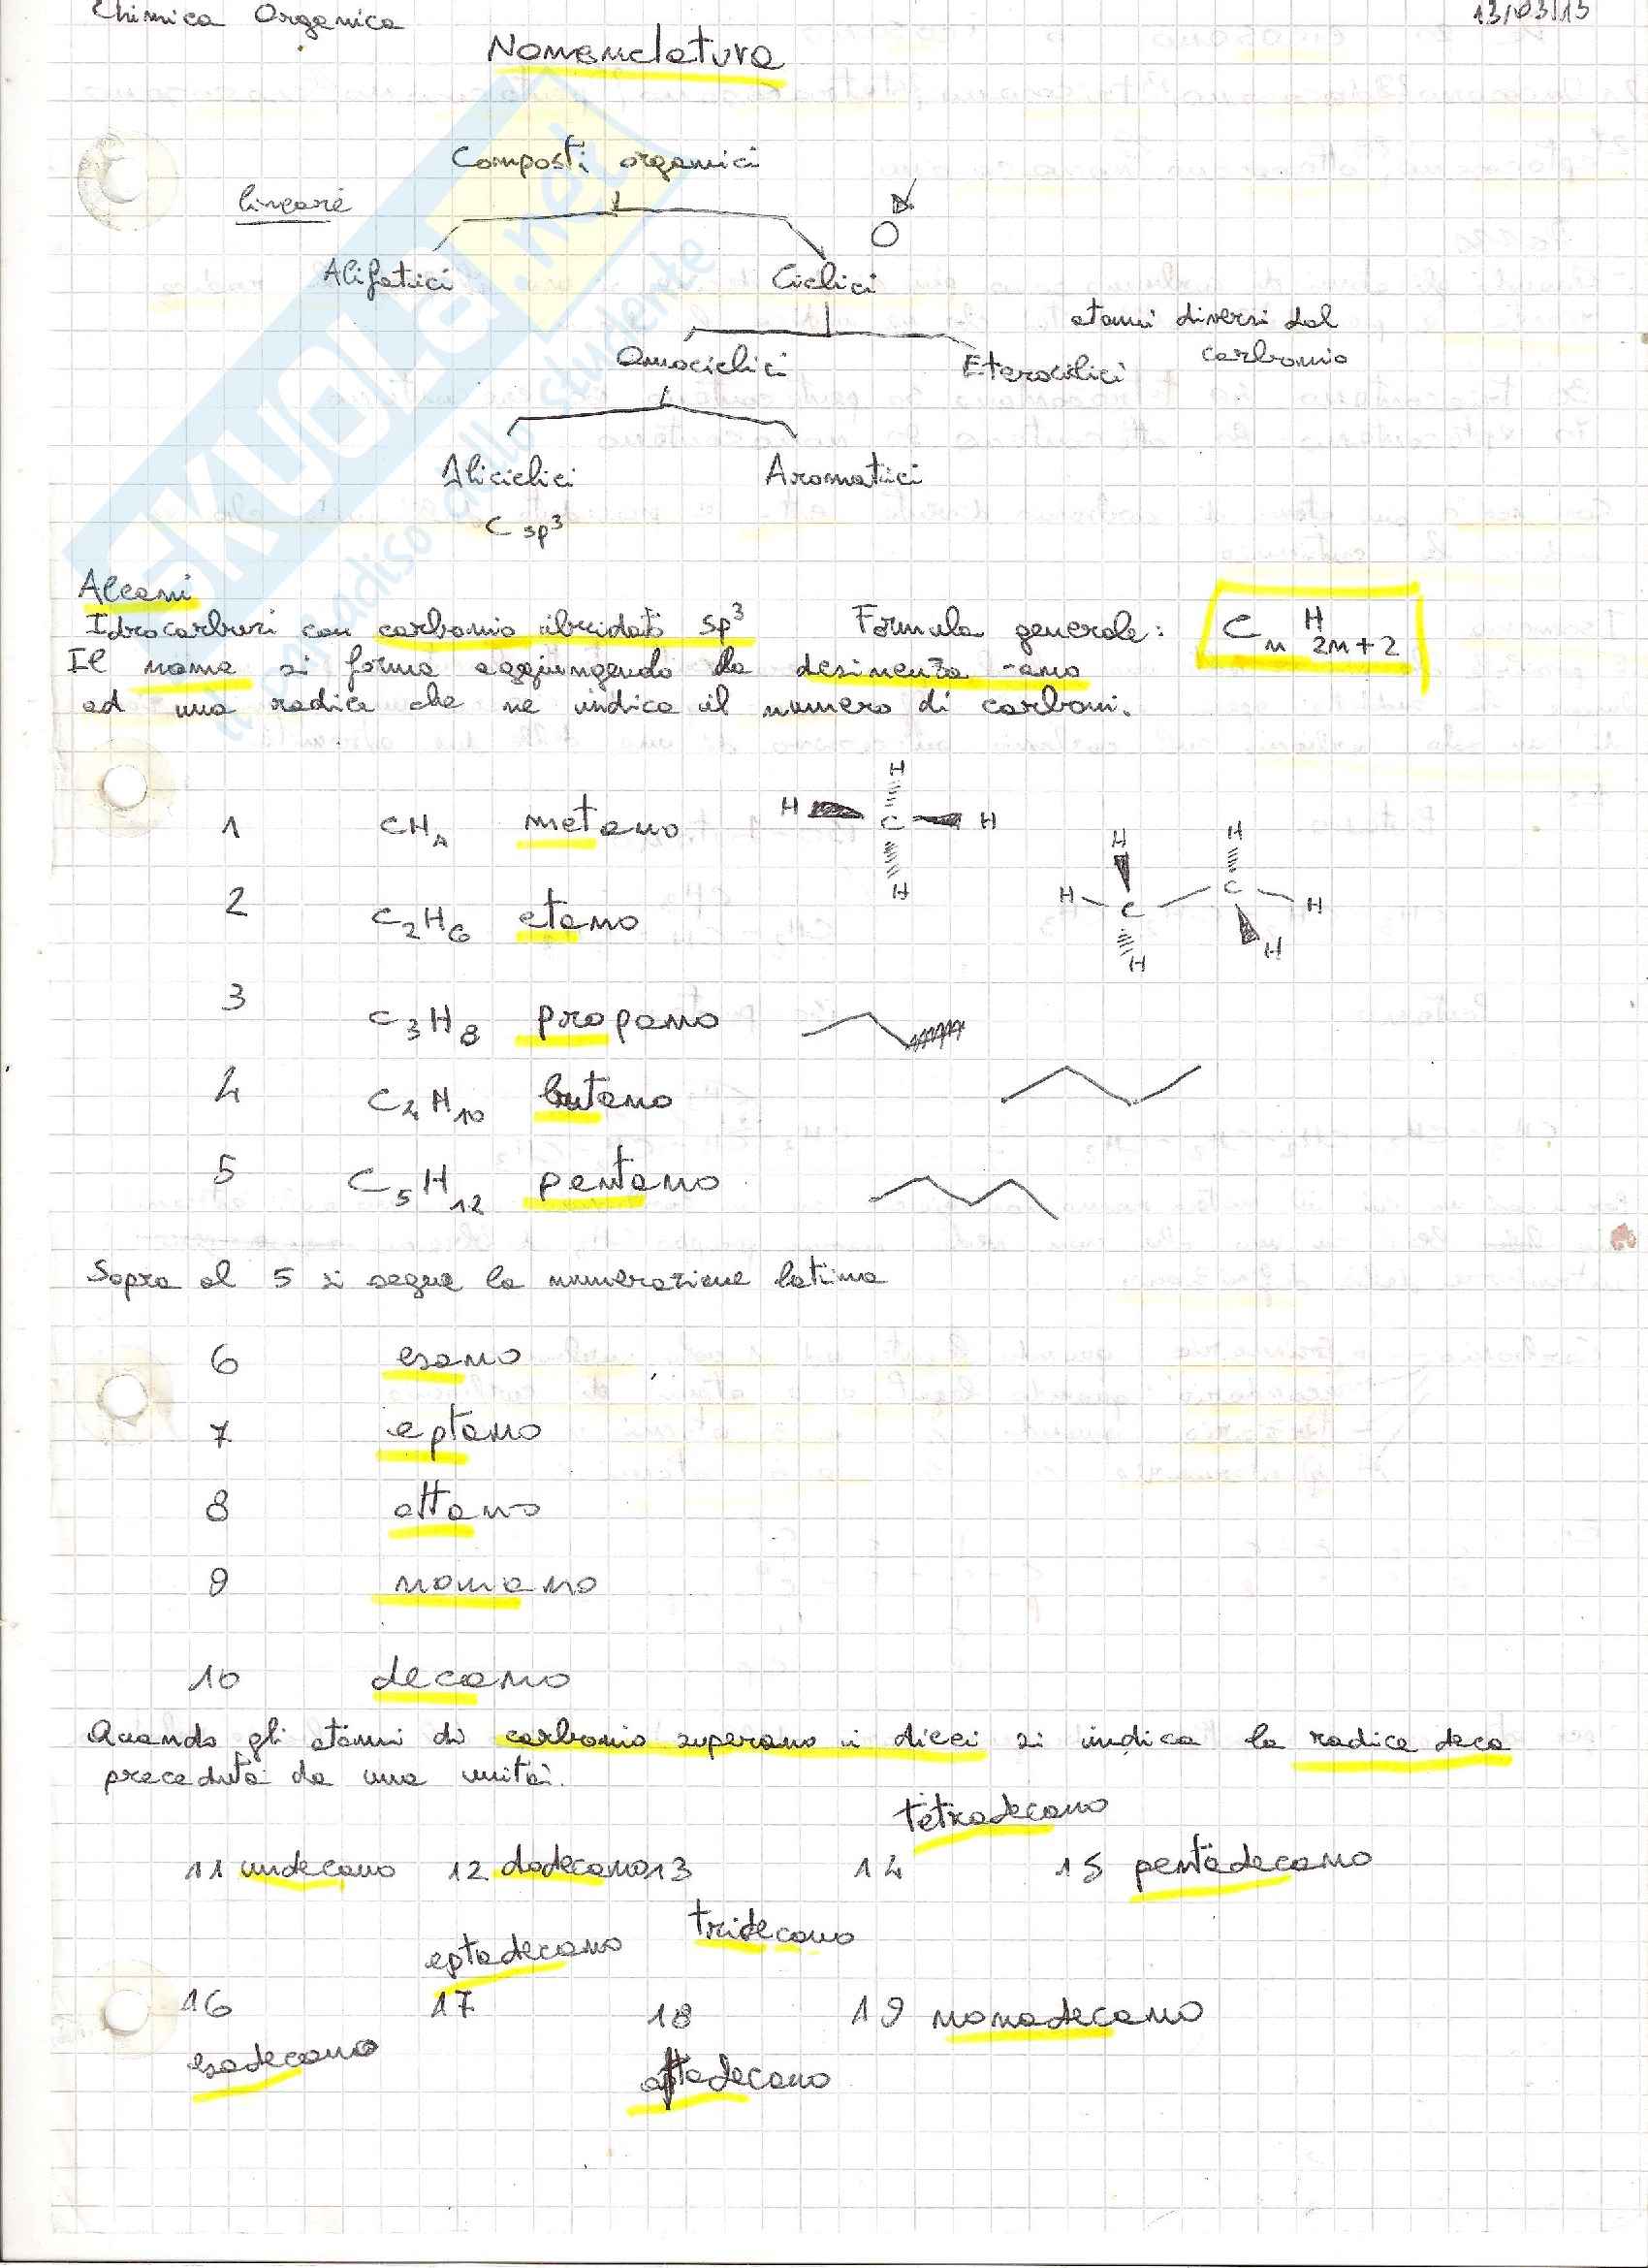 Chimica Organica
13/03/15
Nomenclatura
Composti organici
lineare
Alifatici
Ciclici
Omociclici
Eterociclici
atomi diversi dal
carbonio
Aliciclici
Aromatici
C sp³
Alcani
Idrocarburi con carbonio ibridato sp³ Formula generale: CnH2n+2
Il nome si forma aggiungendo la desinenza -ano
ad una radice che ne indica il numero di carboni.
1 CH4 metano
H
H C H
H
2 C2H6 etano
H H
H C C H
H H
3 C3H8 propano
4 C4H10 butano
5 C5H12 pentano
Sopra al 5 si segue la numerazione latina
6 esano
7 eptano
8 ottano
9 nonano
10 decano
Quando gli atomi di carbonio superano i dieci si indica la radice deca
preceduta da una unità.
11 undecano 12 dodecano 13 tridecano 14 tetradecano 15 pentadecano
16 esadecano 17 eptadecano 18 ottadecano 19 nonadecano
SKUOLA.net
il paradiso dello studente